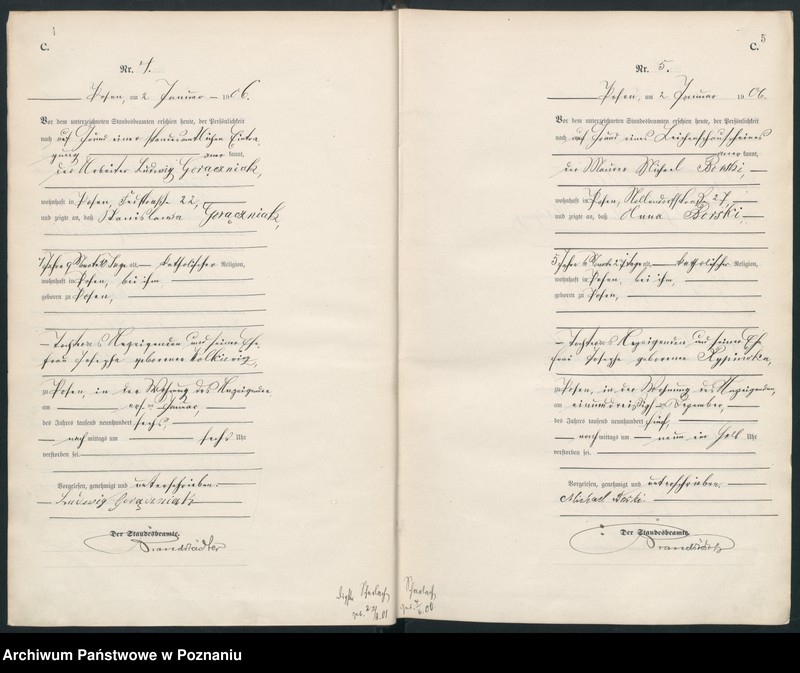 4
C.
Nr. 4.
Posen, am 2 Januar 1906.
Vor dem unterzeichneten Standesbeamten erschien heute, der Persönlichkeit
nach auf Grund einer standesamtlichen Eintra-
gung kannt,
der Arbeiter Ludwig Gorączniak,
wohnhaft in Posen, 22,
und zeigte an, daß Stanislawa Gorączniak,
Jahre Monate Tage alt, katholischer Religion,
wohnhaft in Posen, bei ihm,
geboren zu Posen,
Tochter des Anzeigenden und seiner Ehe-
frau Josepha geborenen
zu Posen, in der Wohnung des Anzeigenden,
am ersten Januar,
des Jahres tausend neunhundert sechs,
nach mittags um sechs Uhr
verstorben sei.
Vorgelesen, genehmigt und unterschrieben.
Ludwig Gorączniak
Der Standesbeamte.
Brandstädter
Scharlach
geb.
5
C.
Nr. 5.
Posen, am 2 Januar 1906.
Vor dem unterzeichneten Standesbeamten erschien heute, der Persönlichkeit
nach auf Grund eines Leichenschauscheines
kannt,
der Maurer Michael Borski,
wohnhaft in Posen, 27,
und zeigte an, daß Anna Borski,
5 Jahre 6 Monate 27 Tage alt, katholischer Religion,
wohnhaft in Posen, bei ihm,
geboren zu Posen,
Tochter des Anzeigenden und seiner Ehe-
frau Josepha geborenen
zu Posen, in der Wohnung des Anzeigenden,
am einunddreißigsten Dezember,
des Jahres tausend neunhundert fünf,
nach mittags um neun ein halb Uhr
verstorben sei.
Vorgelesen, genehmigt und unterschrieben.
Michael Borski
Der Standesbeamte.
Brandstädter
Scharlach
geb.
Archiwum Państwowe w Poznaniu